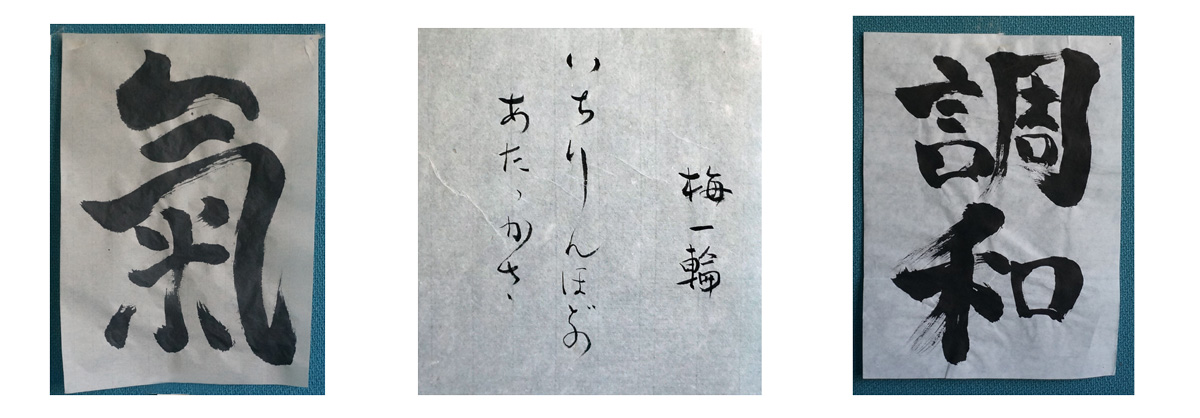 氣
梅一輪
いちりんほどの
あたゝかさ
調和